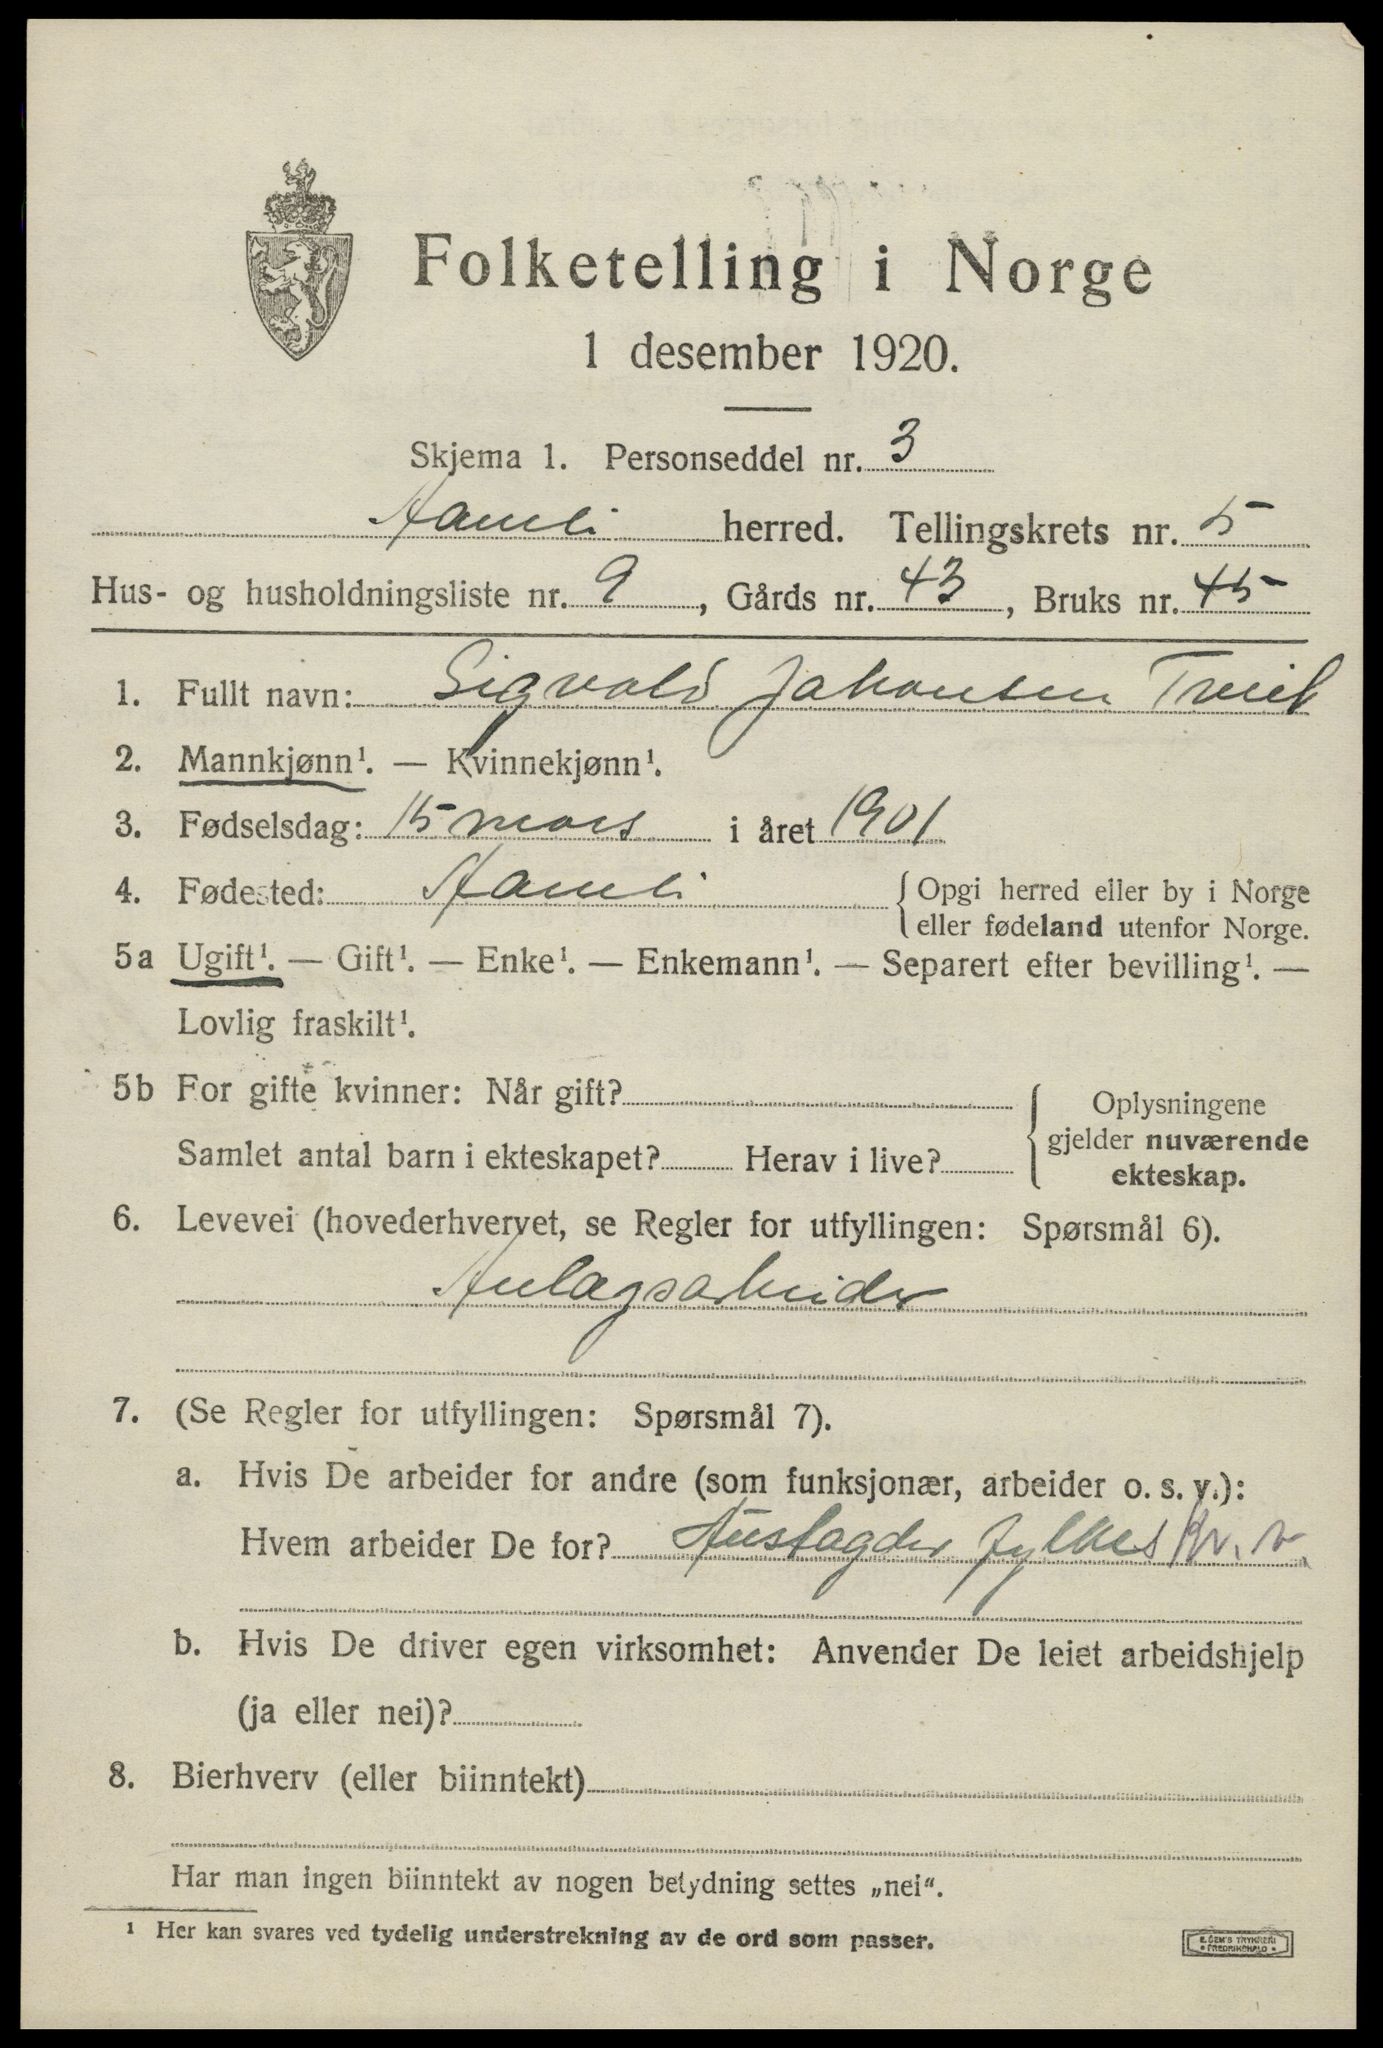 Folketelling i Norge
1 desember 1920.
Skjema 1. Personseddel nr. 3
Aamli herred. Tellingskrets nr. 5
Hus- og husholdningsliste nr. 9, Gårds nr. 43, Bruks nr. 45
1. Fullt navn: Sigvald Johansen Tveit
2. Mannkjønn¹. — Kvinnekjønn¹.
3. Fødselsdag: 15 mars i året 1901
4. Fødested: Aamli { Opgi herred eller by i Norge
eller fødeland utenfor Norge.
5a Ugift¹. — Gift¹. — Enke¹. — Enkemann¹. — Separert efter bevilling¹. —
Lovlig fraskilt¹.
5b For gifte kvinner: Når gift? { Oplysningene
gjelder nuværende
Samlet antal barn i ekteskapet? Herav i live?
ekteskap.
6. Levevei (hovederhvervet, se Regler for utfyllingen: Spørsmål 6).
Anlægsarbeider
7. (Se Regler for utfyllingen: Spørsmål 7).
a. Hvis De arbeider for andre (som funksjonær, arbeider o. s. v.):
Hvem arbeider De for? Austagder fylkes kr. v.
b. Hvis De driver egen virksomhet: Anvender De leiet arbeidshjelp
(ja eller nei)?
8. Bierhverv (eller biinntekt)
Har man ingen biinntekt av nogen betydning settes „nei“.
¹ Her kan svares ved tydelig understrekning av de ord som passer.
E. SEM'S TRYKKERI
FREDRIKSHALD